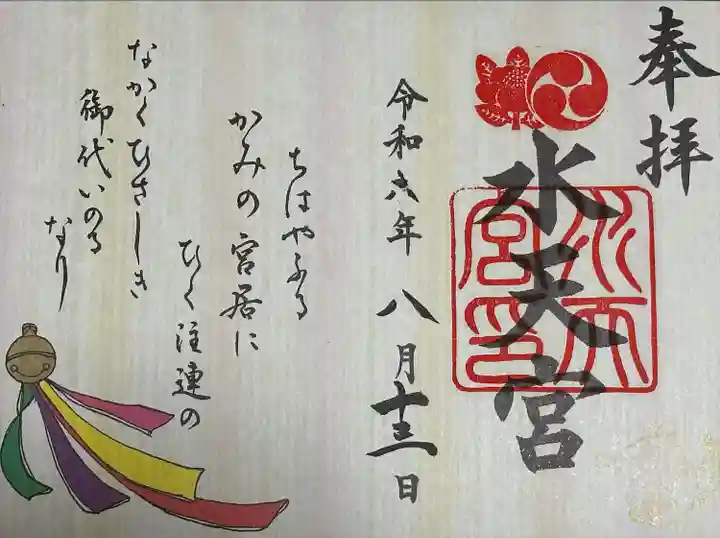 奉拝
水天宮
水天宮印
令和六年 八月十三日
ちはやふる
かみの宮居に
ひく注連の
なかくひさしき
御代いのる
なり